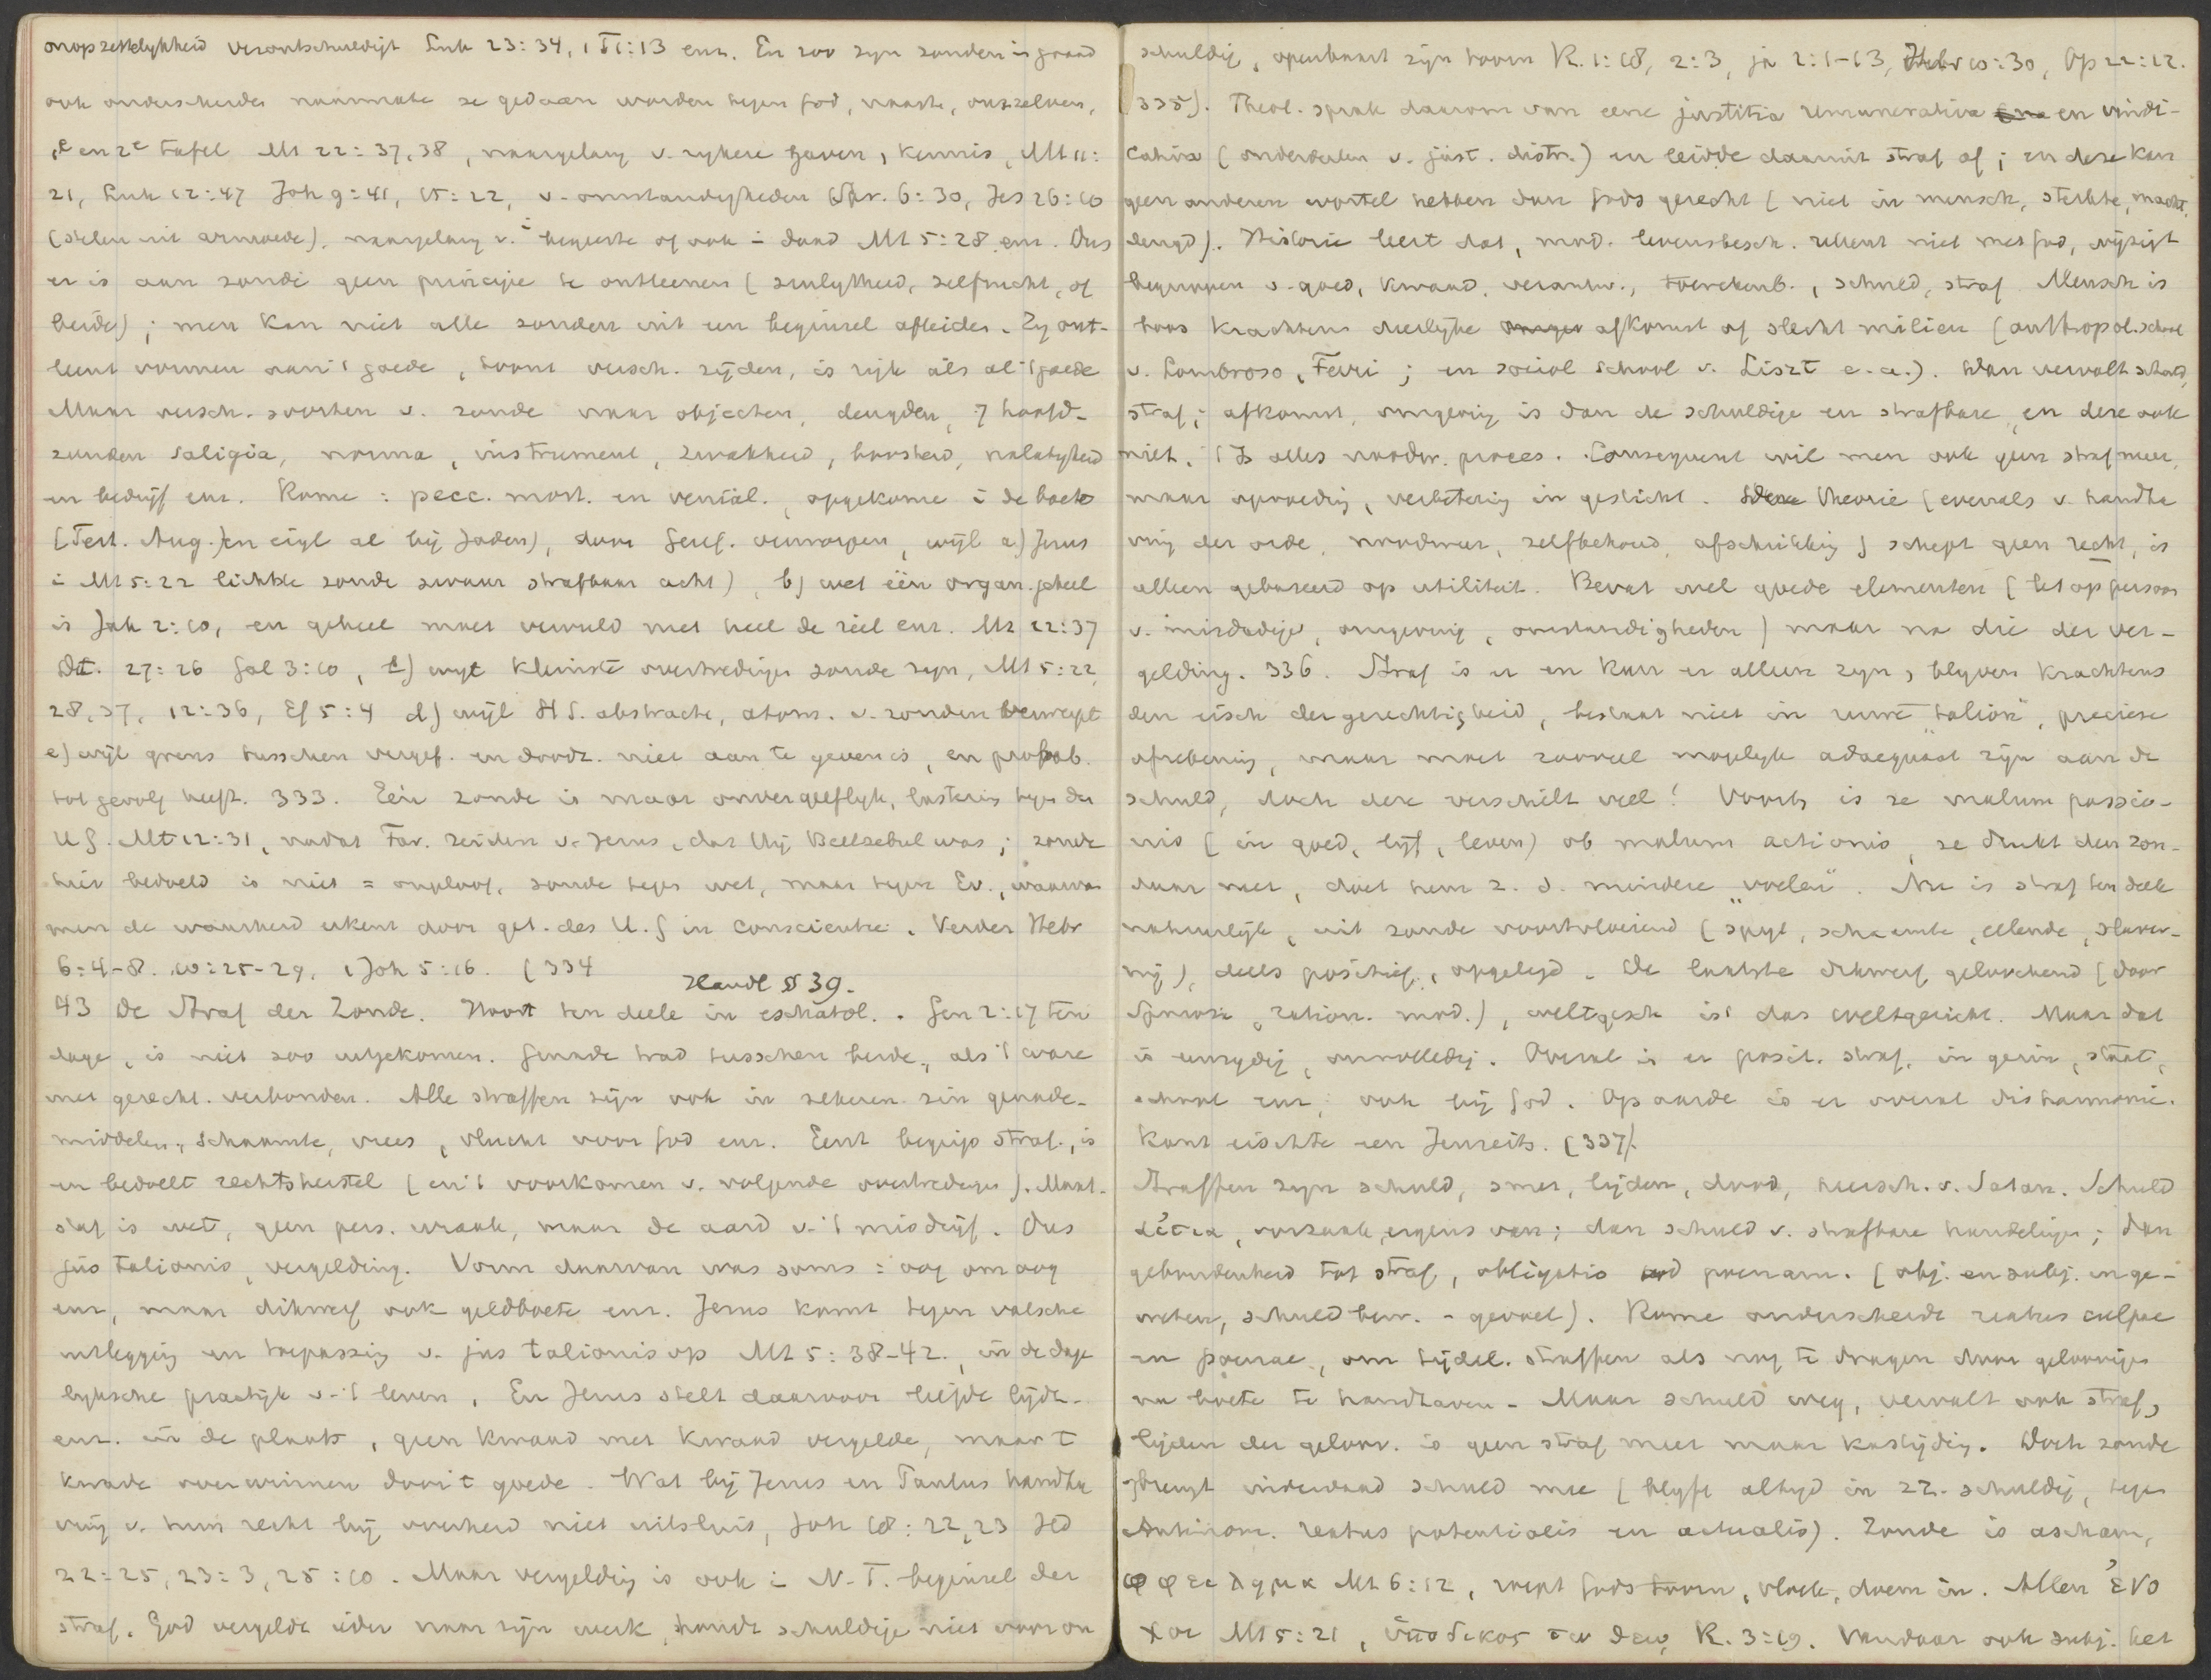 onopzettelykheid verontschuldigt Luk 23:34, 1 Ti 1:13 enz. En zoo zyn zonden in graad
ook onderscheiden naarmate ze gedaan worden tegen God, naaste, onszelven,
1e en 2e tafel Mt 22:37,38, naargelang v. rykere gaven, kennis, Mt 11:
21, Luk 12:47 Joh 9:41, 15:22, v. omstandigheden Spr. 6:30, Jes 26:10
(stelen uit armoede), naargelang v. begeerte of ook i daad Mt 5:28 enz. Dus
er is aan zonde geen principe te ontleenen (zinlykheid, zelfzucht, of
beide); men kan niet alle zonden uit een beginsel afleiden. Zy ont-
leent vormen aan 't goede, toont versch. zijden, is rijk als al 't goede
Maar versch. soorten v. zonde naar objecten, deugden, 7 hoofd-
zonden saligia, norma, instrument, zwakheid, boosheid, nalatigheid
en bedrijf enz. Rome: pecc. mort. en venial., opgekomen i de boete
(Tert. Aug.) en eigl al bij Joden), door Geref. verworpen, wijl a) Jezus
i Mt 5:22 lichtste zonde zwaar strafbaar acht), b) wet één organ. geheel
is Jak 2:10, en geheel moet vervuld met heel de ziel enz. Mt 22:37
Dt. 27:26 Gal 3:10, c) wyl kleinste overtredingen zonde zyn, Mt 5:22,
28,37, 12:36, Ef 5:4 d) wijl HS. abstracte, atom. v. zonden verwerpt
e) wijl grens tusschen vergef. en doodz. niet aan te geven is, en probab.
tot gevolg heeft. 333. Eén zonde is maar onvergeeflyk, lastering tegen den
H.G. Mt 12:31, nadat Far. zeiden v. Jezus, dat Hij Beelzebul was; zonde
hier bedoeld is niet = ongeloof, zonde tegen wet, maar tegen Ev., waarvan
men de waarheid erkent door get. des H.G in conscientie. Verder Hebr
6:4-8. 10:25-29, 1 Joh 5:16. (334
Handl § 39.
43 De Straf der Zonde. Hoort ten deele in eschatol.. Gen 2:17 ten
dage, is niet zoo uitgekomen. Genade trad tusschen beide, als 't ware
met gerecht. verbonden. Alle straffen zijn ook in zekeren zin genade-
middelen, schaamte, vrees, vlucht voor God enz. Eerst begrip straf, is
en bedoelt rechtsherstel (en 't voorkomen v. volgende overtredingen). Maat-
staf is wet, geen pers. wraak, maar de aard v. 't misdrijf. Dus
jus talionis, vergelding. Vorm daarvan was soms: oog om oog
enz, maar dikwerf ook geldboete enz. Jezus komt tegen valsche
uitlegging en toepassing v. jus talionis op Mt 5:38-42., in de dage
lyksche practijk v. 't leven. En Jezus stelt daarvoor liefde lijdz.
enz. in de plaats, geen kwaad met kwaad vergelde, maar t
kwade overwinnen door 't goede. Wat bij Jezus en Paulus handha
ving v. hun recht bij overheid niet uitsluit, Joh 18:22,23 Hd
22:25, 23:3, 25:10. Maar vergelding is ook i N.T. beginsel der
straf. God vergeldt ieder naar zijn werk, houdt schuldige niet voor on
schuldig, openbaart zijn toorn R. 1:18, 2:3, ja 2:1-13, Hebr 10:30, Op 22:12.
335). Theol. sprak daarom van eene justitia remunerativa en vindi-
cativa (onderdeelen v. just. distr.) en leidde daaruit straf af; en deze kan
geen anderen wortel hebben dan Gods gerecht (niet in mensch, sterkte, macht,
deugd). Historie leert dat, mod. levensbesch. rekent niet met God, wijzigt
begrippen v. goed, kwaad, verantw., toerekenb., schuld, straf. Mensch is
boos krachtens dierlijke afkomst of slecht milieu (anthropol. school
v. Lombroso, Ferri; en sociol school v. Liszt e.a.). Dan vervalt schuld,
straf; afkomst, omgeving is dan de schuldige en strafbare, en deze ook
niet. 't Is alles noodw. proces. Consequent wil men ook geen straf meer,
maar opvoeding, verbetering in gesticht. Deze theorie (evenals v. handha
ving der orde, noodweer, zelfbehoud, afschrikking) schept geen recht, is
alleen gebaseerd op utiliteit. Bevat wel goede elementen (let op persoon
v. misdadige, omgeving, omstandigheden) maar na die der ver-
gelding. 336. Straf is er en kan er alleen zyn, blyven krachtens
den eisch der gerechtigheid, bestaat niet in "talion", preciese
afrekening, maar moet zooveel mogelyk adaequaat zijn aan de
schuld, doch deze verschilt veel! Voorts is ze malum passio-
nis (in goed, lijf, leven) ob malum actionis, ze drukt den zon-
daar neer, doet hem z. d. mindere "voelen". Nu is straf ten deele
natuurlijk, uit zonde voortvloeiend (spyt, schaamte, ellende, slaver-
nij), deels positief, opgelegd. De laatste dikwerf geloochend (door
Spinoza, ration. mod.), weltgesch ist das Weltgericht. Maar dat
is eenzydig, onvolledig. Overal is er posit. straf, in gezin, staat,
school enz, ook bij God. Op aarde is er overal disharmonie.
Kant eischte een Jenseits. (337).
Straffen zyn schuld, smet, lijden, dood, heersch. v. Satan. Schuld
αἰτια, oorzaak ergens van; dan schuld v. strafbare handelingen; dan
gebondenheid tot straf, obligatio ad poenam. (obj. en subj. in ge-
weten, schuldbew. - gevoel). Rome onderscheidt reatus culpae
en poenae, om tijdel. straffen als nog te dragen door geloovigen
na boete te handhaven - Maar schuld weg, vervalt ook straf,
lijden der geloov. is geen straf meer maar kastijding. Doch zonde
brengt inderdaad schuld mee (blyft altyd in zz. schuldig, tegen
Antinom. reatus potentialis en actualis). Zonde is ascham,
ὀφειλημα Mt 6:12, roept Gods toorn, vloek, doem in. Allen ἐνο
χοι Mt 5:21, ὑποδικος τω θεῳ R. 3:19. Vandaar ook subj. het